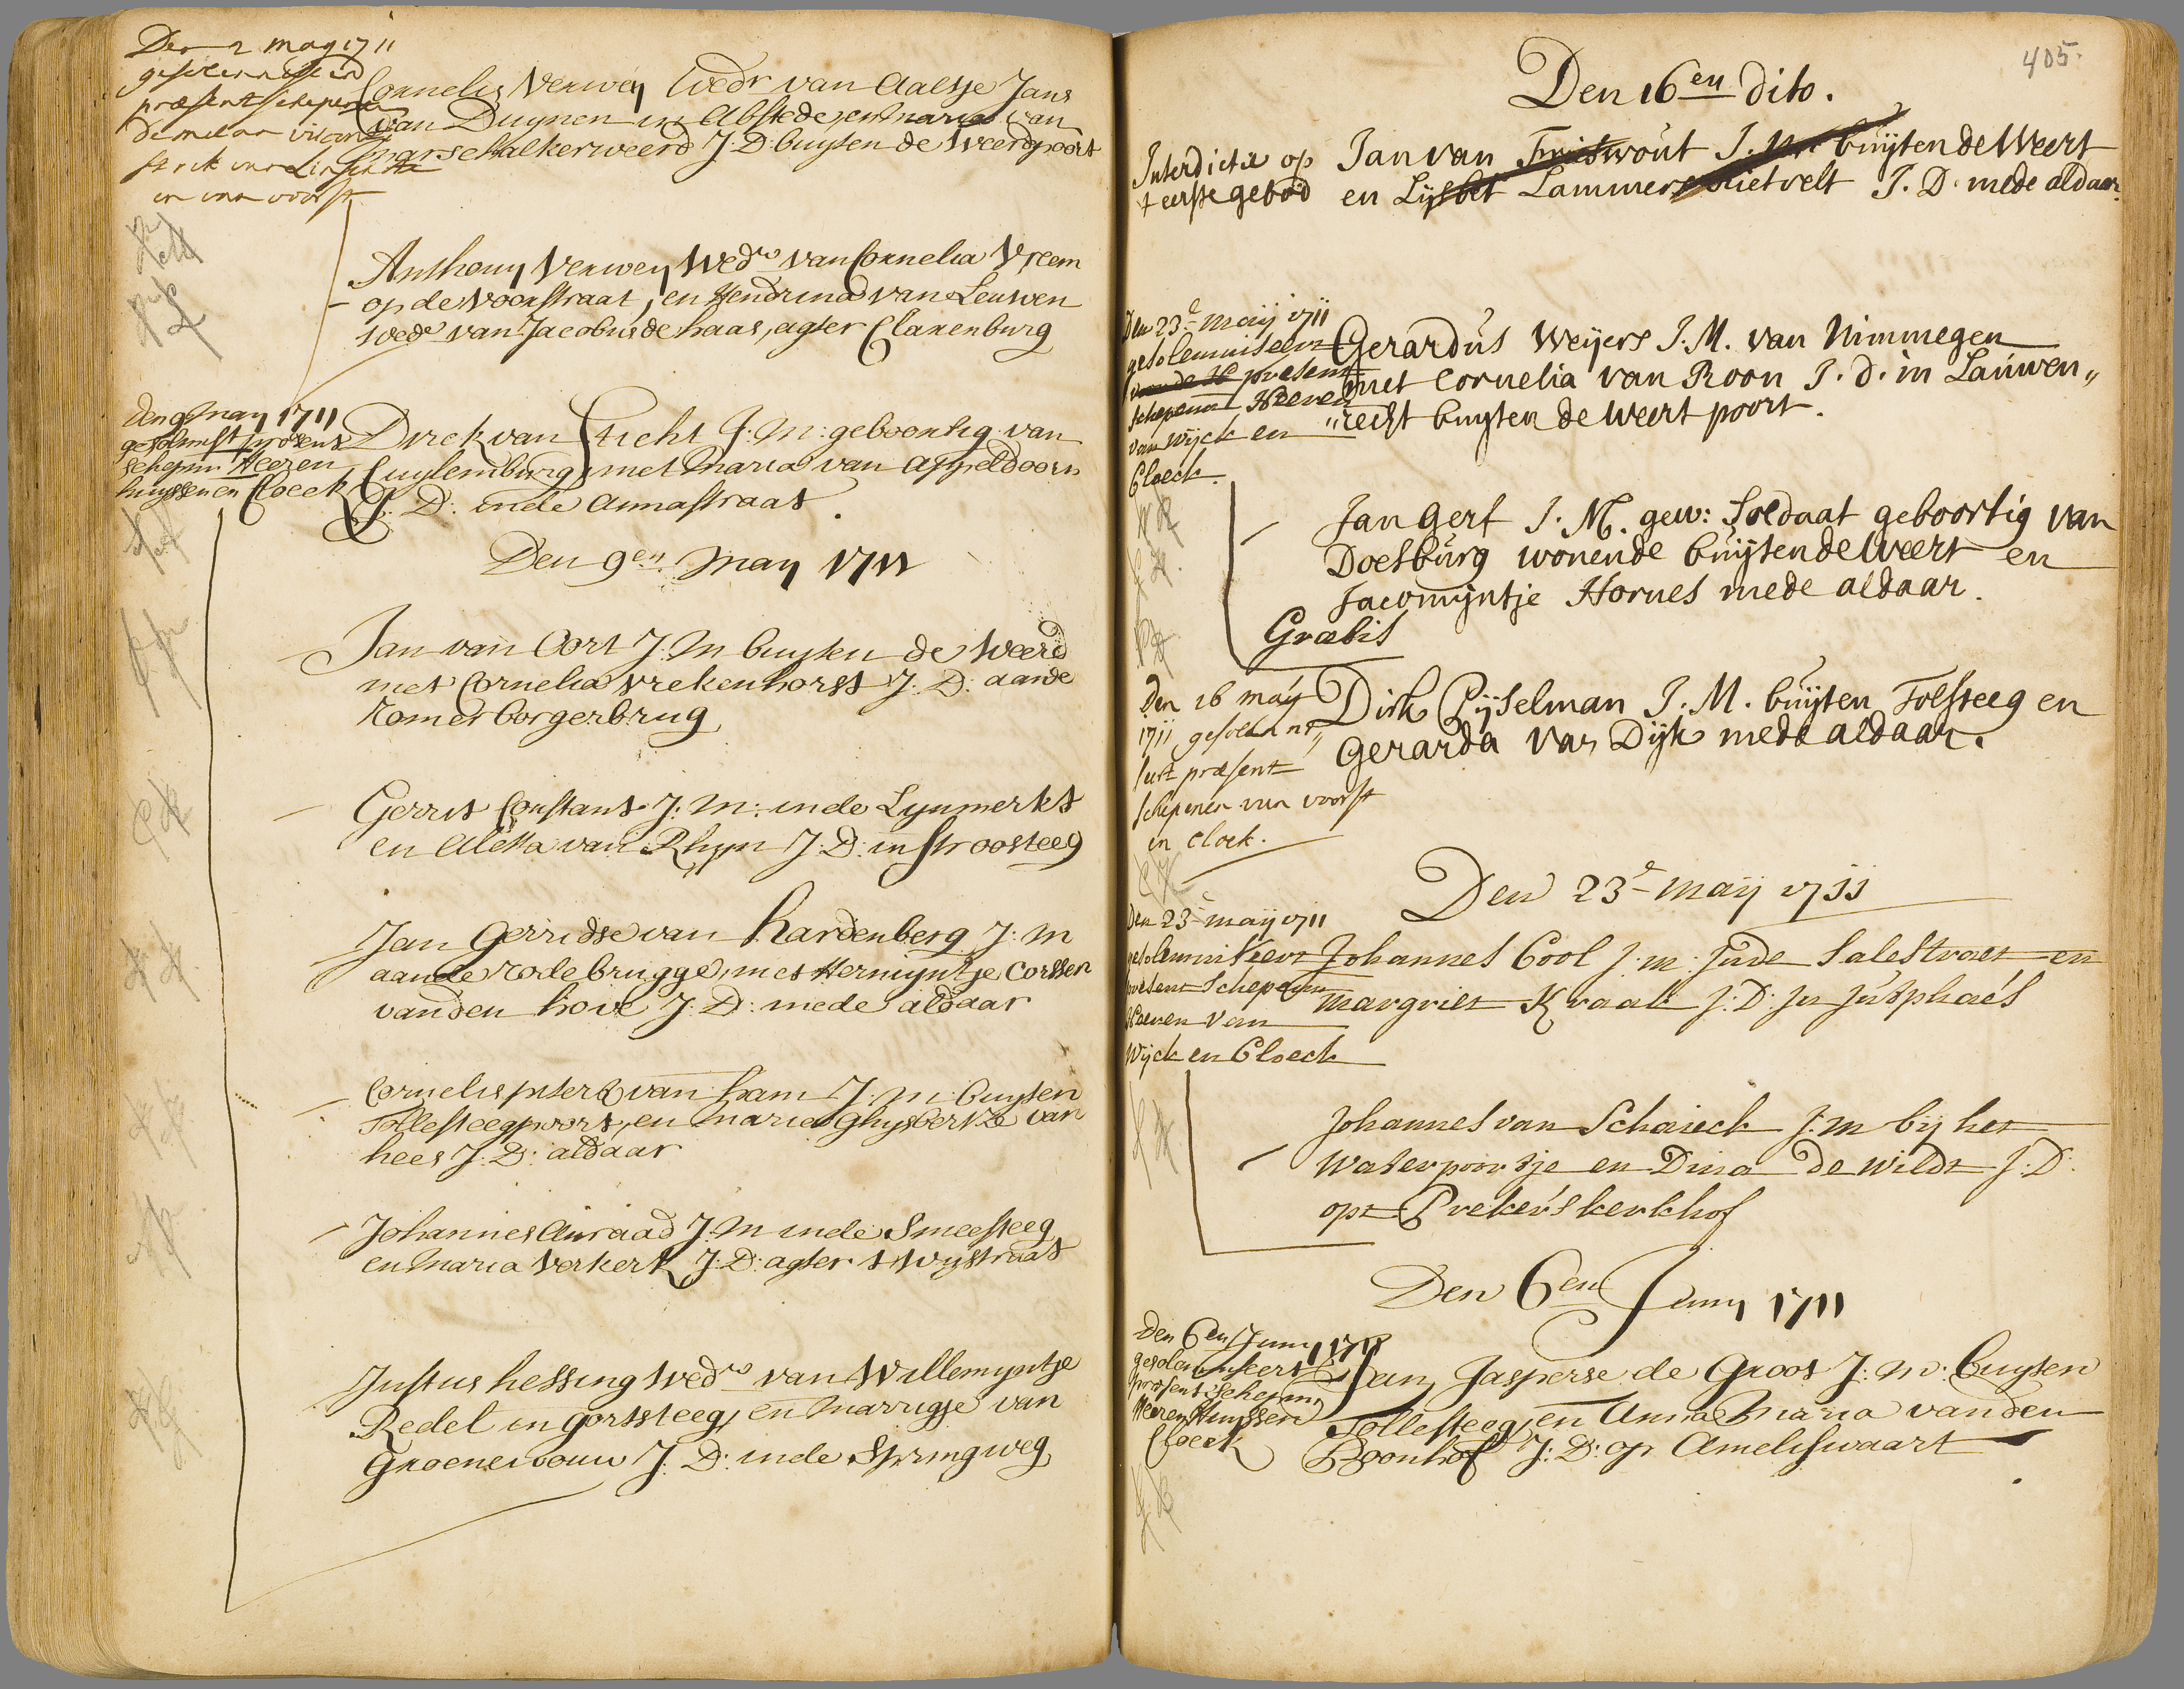 Den 2 may 1711
præsent schepenen
van voorst
Cornelis Verweij Wedr van Aaltje Jans
van Duynen in Abstede, en maria van
marschalkerweerd J. D. buyten de Weerdpoort
Anthony Verweij Wedr van Cornelia Vreem
op de Voorstraat, en Hendrina van Leuwen
wede van Jacobus de haas, agter Clarenburg
den 9 may 1711
gesolemst present
schepen Heeren
huyssen en Cloeck
Dirck van Stricht J: M: geboortig van
Cuylemburg, met maria van Appeldoorn
J: D: inde Annastraat.
Den 9en may 1711
Jan van Oort J: M buyten de Weerd
met Cornelia Vrekenhorst J: D: aande
Romerborgerbrug
Gerrit Constant J: M: inde Lynmerkt
en Aletta van Rhyn J: D: in Stroosteeg
Jan Gerridse van Hardenberg J: M
aande rode brugge, met Hermyntje Corssen
vanden hove J: D: mede aldaar
Cornelis peters van ham J: M: buyten
Tollesteegpoort, en maria Ghysbertze van
hees J: D: aldaar
Johannes Anraad J: M inde Smeesteeg
en maria Verkerk J: D: agter t Wystraat
Justus hessing Wedr van Willemyntje
Redel in gortsteeg, en marrigje van
Groenewoud J: D: inde Springweg
405.
Den 16en dito.
Interdictie op
t eerste gebod
Jan van J. M. buijten de Weert
en Lijsbet Lammers Rietvelt J. D. mede aldaar.
Den 23e maij 1711
gesolemniseert
vande H present
schepenen Heeren
van Wijck en
Cloeck.
Gerardus Weijers J. M. van Nimmegen
met Cornelia van Roon J. d. in Lauwen„
„recht buyten de weert poort.
Jan Gerf J. M. gew: Soldaat geboortig van
Doesburg wonende buijten de Weert en
Jacomijntje Hornes mede aldaar.
Gratis
Den 16 maij
1711 gesolemni„
seert præsent
schepenen van voorst
en cloek.
Dirk Pijselman J. M. buijten Tolsteeg en
Gerarda van Dijk mede aldaar.
Den 23e maij 1711
Den 23e maij 1711
gesolemniseert
present Schepenen
Heeren van
Wijck en Cloeck
Johannes Cool J: m: Jnde Salestraet en
margriet Kraak J: D: Jn Jutphaes
Johannes van Schaieck J: m bij het
Waterpoortje en Dina de Wildt J: D:
opt Prekers kerkhof
Den 6en Juny 1711
den 6en Juny 1711
gesolemniseert
present schepen
Heeren Huyssen
Cloeck
Jan Jasperse de Groot J: M: buyten
Tollesteeg, en Anna Maria vanden
Boonhof J: D: op Amelisswaart